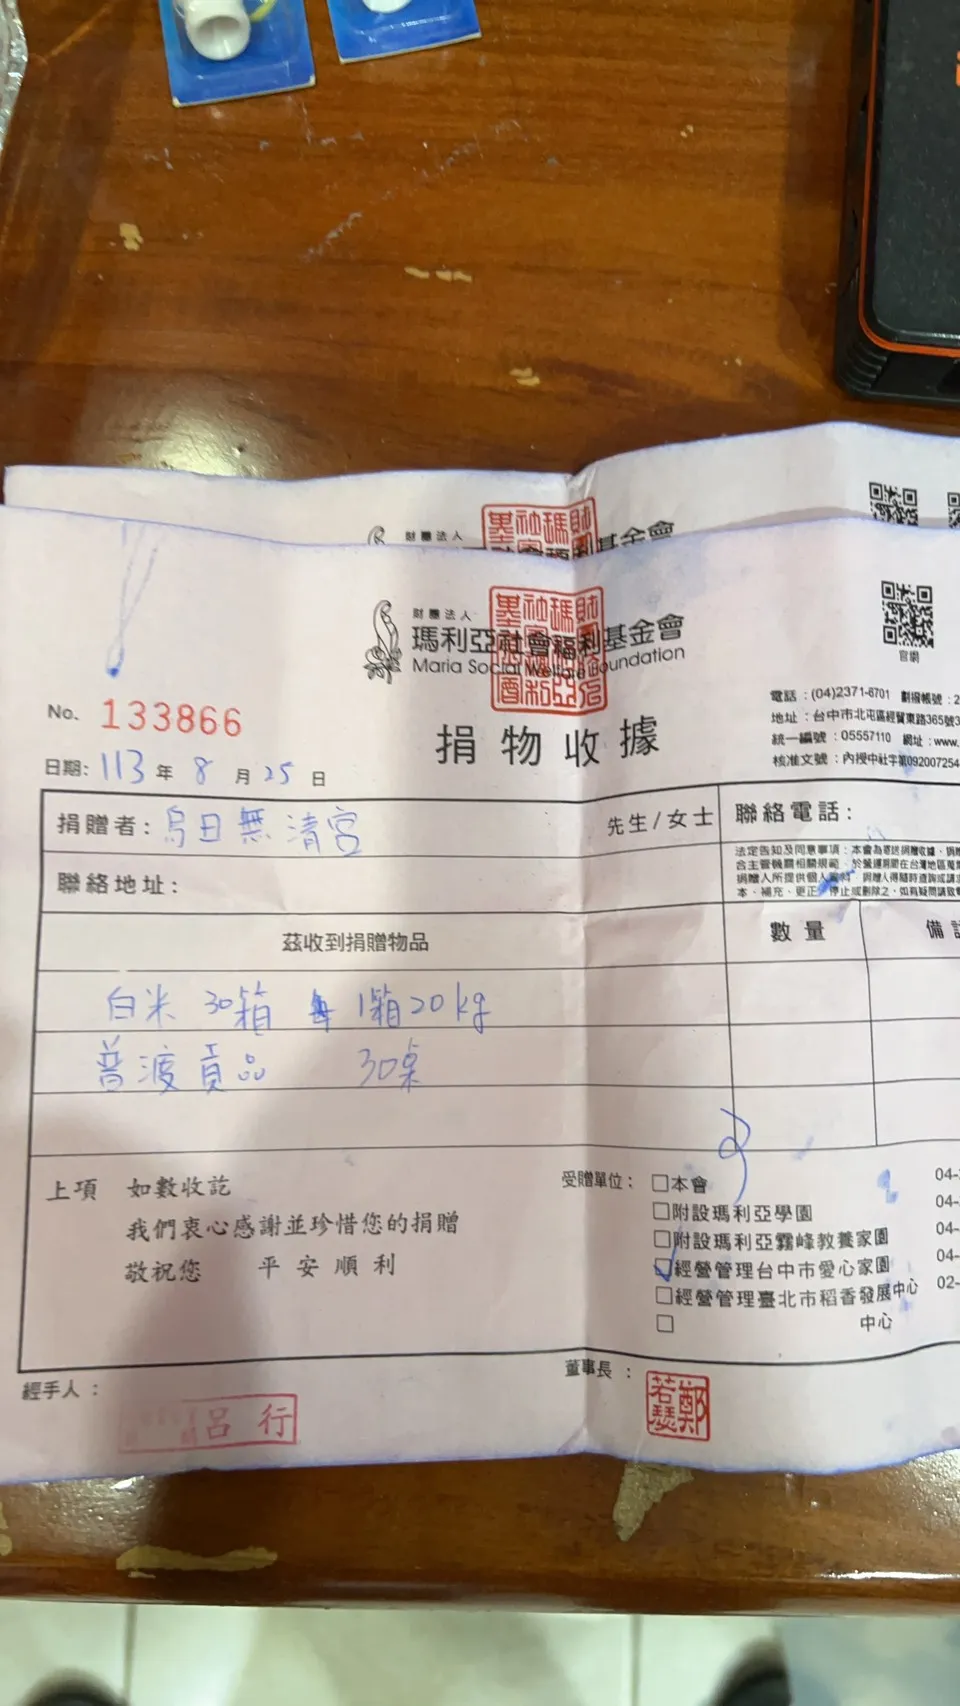 財團法人
基金會
財團法人
瑪利亞社會福利基金會
Maria Social Welfare Foundation
官網
No. 133866
捐物收據
電話：(04)2371-6701 劃撥帳號：2
地址：台中市北屯區經貿東路365號3
統一編號：05557110 網址：www.
核准文號：內授中社字第092007254
日期：113年8月25日
捐贈者：烏日無清宮 先生/女士
聯絡電話：
聯絡地址：
法定告知及同意事項：本會為寄送捐贈收據、捐贈
合主管機關相關規範，於營運期間在台灣地區
捐贈人所提供個人資料，捐贈人得隨時查詢或請求
本、補充、更正、停止或刪除之，如有疑問請致電
茲收到捐贈物品
數量
備註
白米 30箱 每1箱20kg
普渡貢品 30桌
上項 如數收訖
我們衷心感謝並珍惜您的捐贈
敬祝您 平安順利
受贈單位：
□本會
04-
□附設瑪利亞學園
04-
□附設瑪利亞霧峰教養家園
04-
☑經營管理台中市愛心家園
04-
□經營管理臺北市稻香發展中心
02-
□ 中心
經手人：
呂 行
董事長：
鄭若瑟